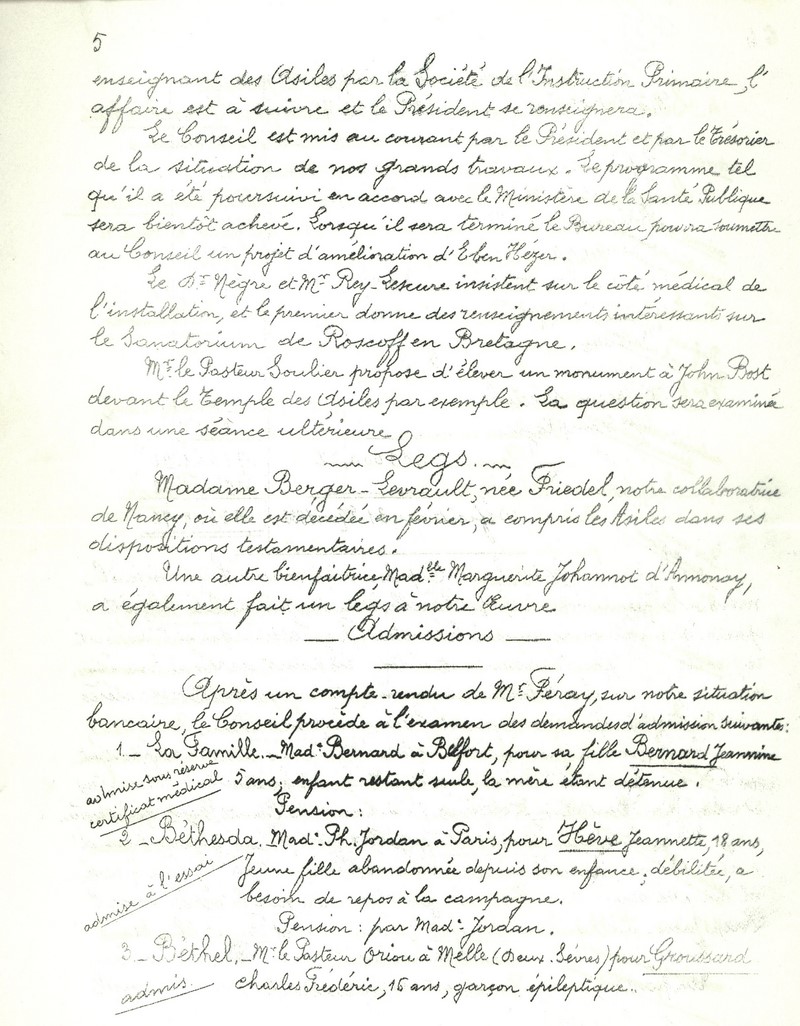 5
enseignant des Asiles par la Société de l'Instruction Primaire, l'
affaire est à suivre et le Président se renseignera.
Le Conseil est mis au courant par le Président et par le Trésorier
de la situation de nos grands travaux. Le programme tel
qu'il a été poursuivi en accord avec le Ministère de la Santé Publique
sera bientôt achevé. Lorsqu'il sera terminé le Bureau pourra soumettre
au Conseil un projet d'amélioration d'Eben Hézer.
Le Dr Nègre et Mr Rey-Lescure insistent sur le côté médical de
l'installation, et le premier donne des renseignements intéressants sur
le Sanatorium de Roscoff en Bretagne.
Mr le Pasteur Soulier propose d'élever un monument à John Bost
devant le Temple des Asiles par exemple. La question sera examinée
dans une séance ultérieure
Legs.
Madame Berger-Levrault, née Friedel, notre collaboratrice
de Nancy, où elle est décédée en février, a compris les Asiles dans ses
dispositions testamentaires.
Une autre bienfaitrice, Madelle Marguerite Johannot d'Annonay,
a également fait un legs à notre Œuvre
Admissions
Après un compte-rendu de Mr Féray, sur notre situation
bancaire, le Conseil procède à l'examen des demandes d'admission suivantes:
1_ La Famille._ Made Bernard à Belfort, pour sa fille Bernard Jeannine
5 ans; enfant restant seule, la mère étant détenue.
admise sous réserve
certificat médical
Pension:
2_ Béthesda. Made Ph. Jordan à Paris, pour Hève Jeannette, 18 ans,
Jeune fille abandonnée depuis son enfance; débilitée, a
admise à l'essai
besoin de repos à la campagne.
Pension: par Made Jordan.
3_ Béthel._ Mr le Pasteur Oriou à Melle (Deux-Sèvres) pour Groussard
admis.
Charles Frédéric, 16 ans, garçon épileptique.